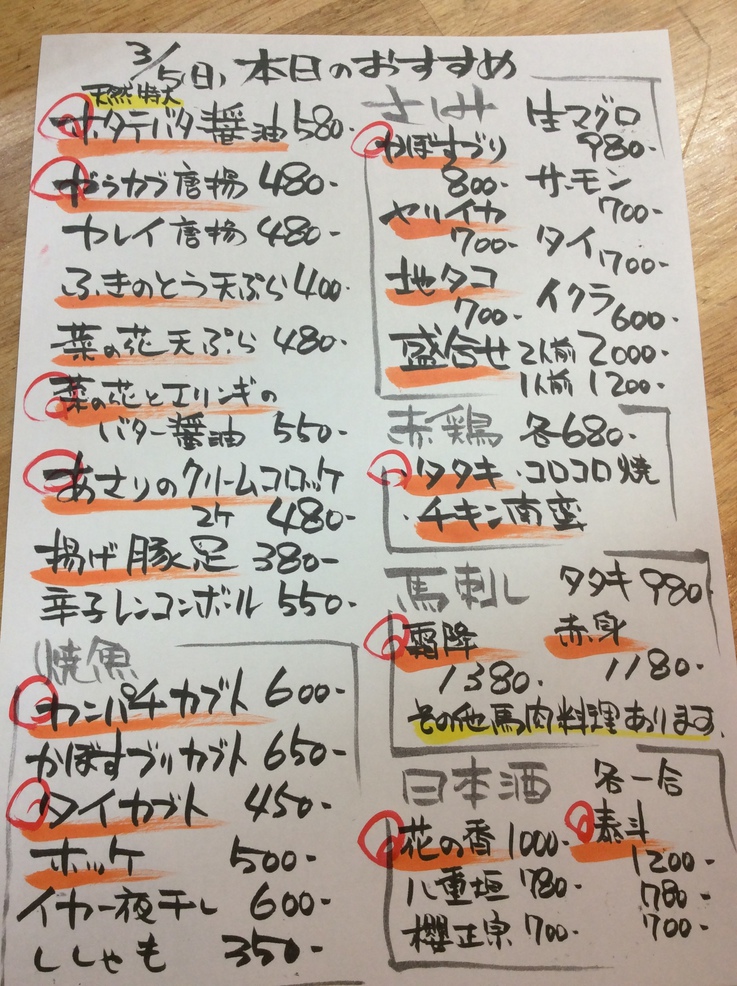 3/5(日) 本日のおすすめ
天然特大
ホタテバター醤油 580-
がらカブ唐揚 480-
カレイ唐揚 480-
ふきのとう天ぷら 400-
菜の花天ぷら 480-
菜の花とエリンギの
バター醤油 550-
あさりのクリームコロッケ
2ケ 480-
揚げ豚足 380-
辛子レンコンボール 550-
焼魚
カンパチカブト 600-
かぼすブリカブト 650-
タイカブト 450-
ホッケ 500-
イカ一夜干し 600-
ししゃも 350-
さしみ
生マグロ
980-
かぼすブリ
800-
サーモン
700-
ヤリイカ
700-
タイ 700-
地タコ
700-
イクラ 600-
盛合せ 2人前 2000-
1人前 1200-
赤鶏 各680-
・タタキ ・コロコロ焼
・チキン南蛮
馬刺し タタキ 980
霜降
1380-
赤身
1180-
その他馬肉料理あります。
日本酒 各一合
花の香 1000-
泰斗
1200-
八重垣 780- 780-
櫻正宗 700- 700-